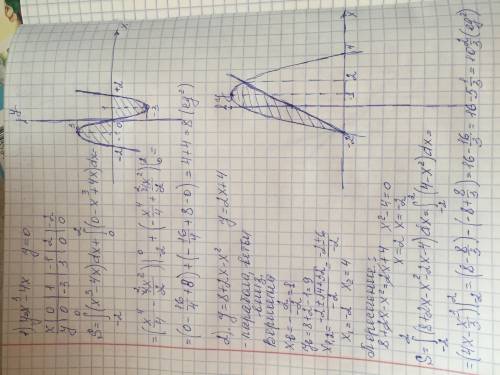 1) y=x³-4x   y=0
x | 0 | 1 | -1 | 2 | -2
y | 0 | -3 | 3 | 0 | 0
S=∫₋₂⁰(x³-4x)dx+∫₀²(0-x³+4x)dx=
=(x⁴/4-4x²/2)|₋₂⁰+(-x⁴/4+4x²/2)|₀²=
=(0-16/4+8)+(-16/4+8-0)=4+4=8(ед²)
y
x
3
-2
-1
0
1
+2
-3
2) y=8+2x-x²   y=2x+4
- парабола, ветви
вниз
Вершина
x_в=-2/-2=1
y_в=8+2-1=9
x₁,₂=(-2±√(4+32))/-2=(-2±6)/-2
x₁=-2   x₂=4
y
x
-2
1
2
4
Пересечения:
8+2x-x²=2x+4   x²-4=0
x=2   x=-2
S=∫₋₂²(8+2x-x²-2x-4)dx=∫₋₂²(4-x²)dx=
=(4x-x³/3)|₋₂²=(8-8/3)-(-8+8/3)=16-16/3=16-5 1/3=10 2/3(ед²)